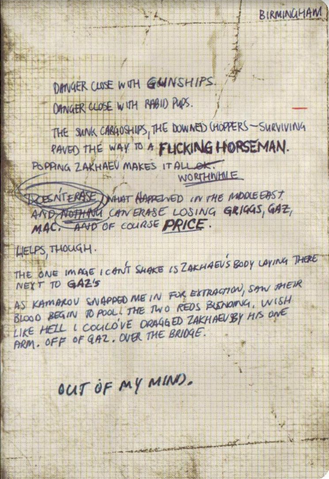 BIRMINGHAM
DANGER CLOSE WITH GUNSHIPS.
DANGER CLOSE WITH RABID PUPS.
THE SUNK CARGOSHIPS, THE DOWNED CHOPPERS - SURVIVING
PAVED THE WAY TO A FUCKING HORSEMAN.
POPPING ZAKHAEV MAKES IT ALL OK.
WORTHWHILE
DOESN'T ERASE WHAT HAPPENED IN THE MIDDLE EAST
AND NOTHING CAN ERASE LOSING GRIGGS, GAZ,
MAC. AND OF COURSE PRICE.
HELPS, THOUGH.
THE ONE IMAGE I CAN'T SHAKE IS ZAKHAEV'S BODY LAYING THERE
NEXT TO GAZ'S
AS KAMAROV SNAPPED ME IN FOR EXTRACTION, SAW THEIR
BLOOD BEGIN TO POOL. THE TWO REDS BLENDING, WISH
LIKE HELL I COULD'VE DRAGGED ZAKHAEV BY HIS ONE
ARM. OFF OF GAZ. OVER THE BRIDGE.
OUT OF MY MIND.